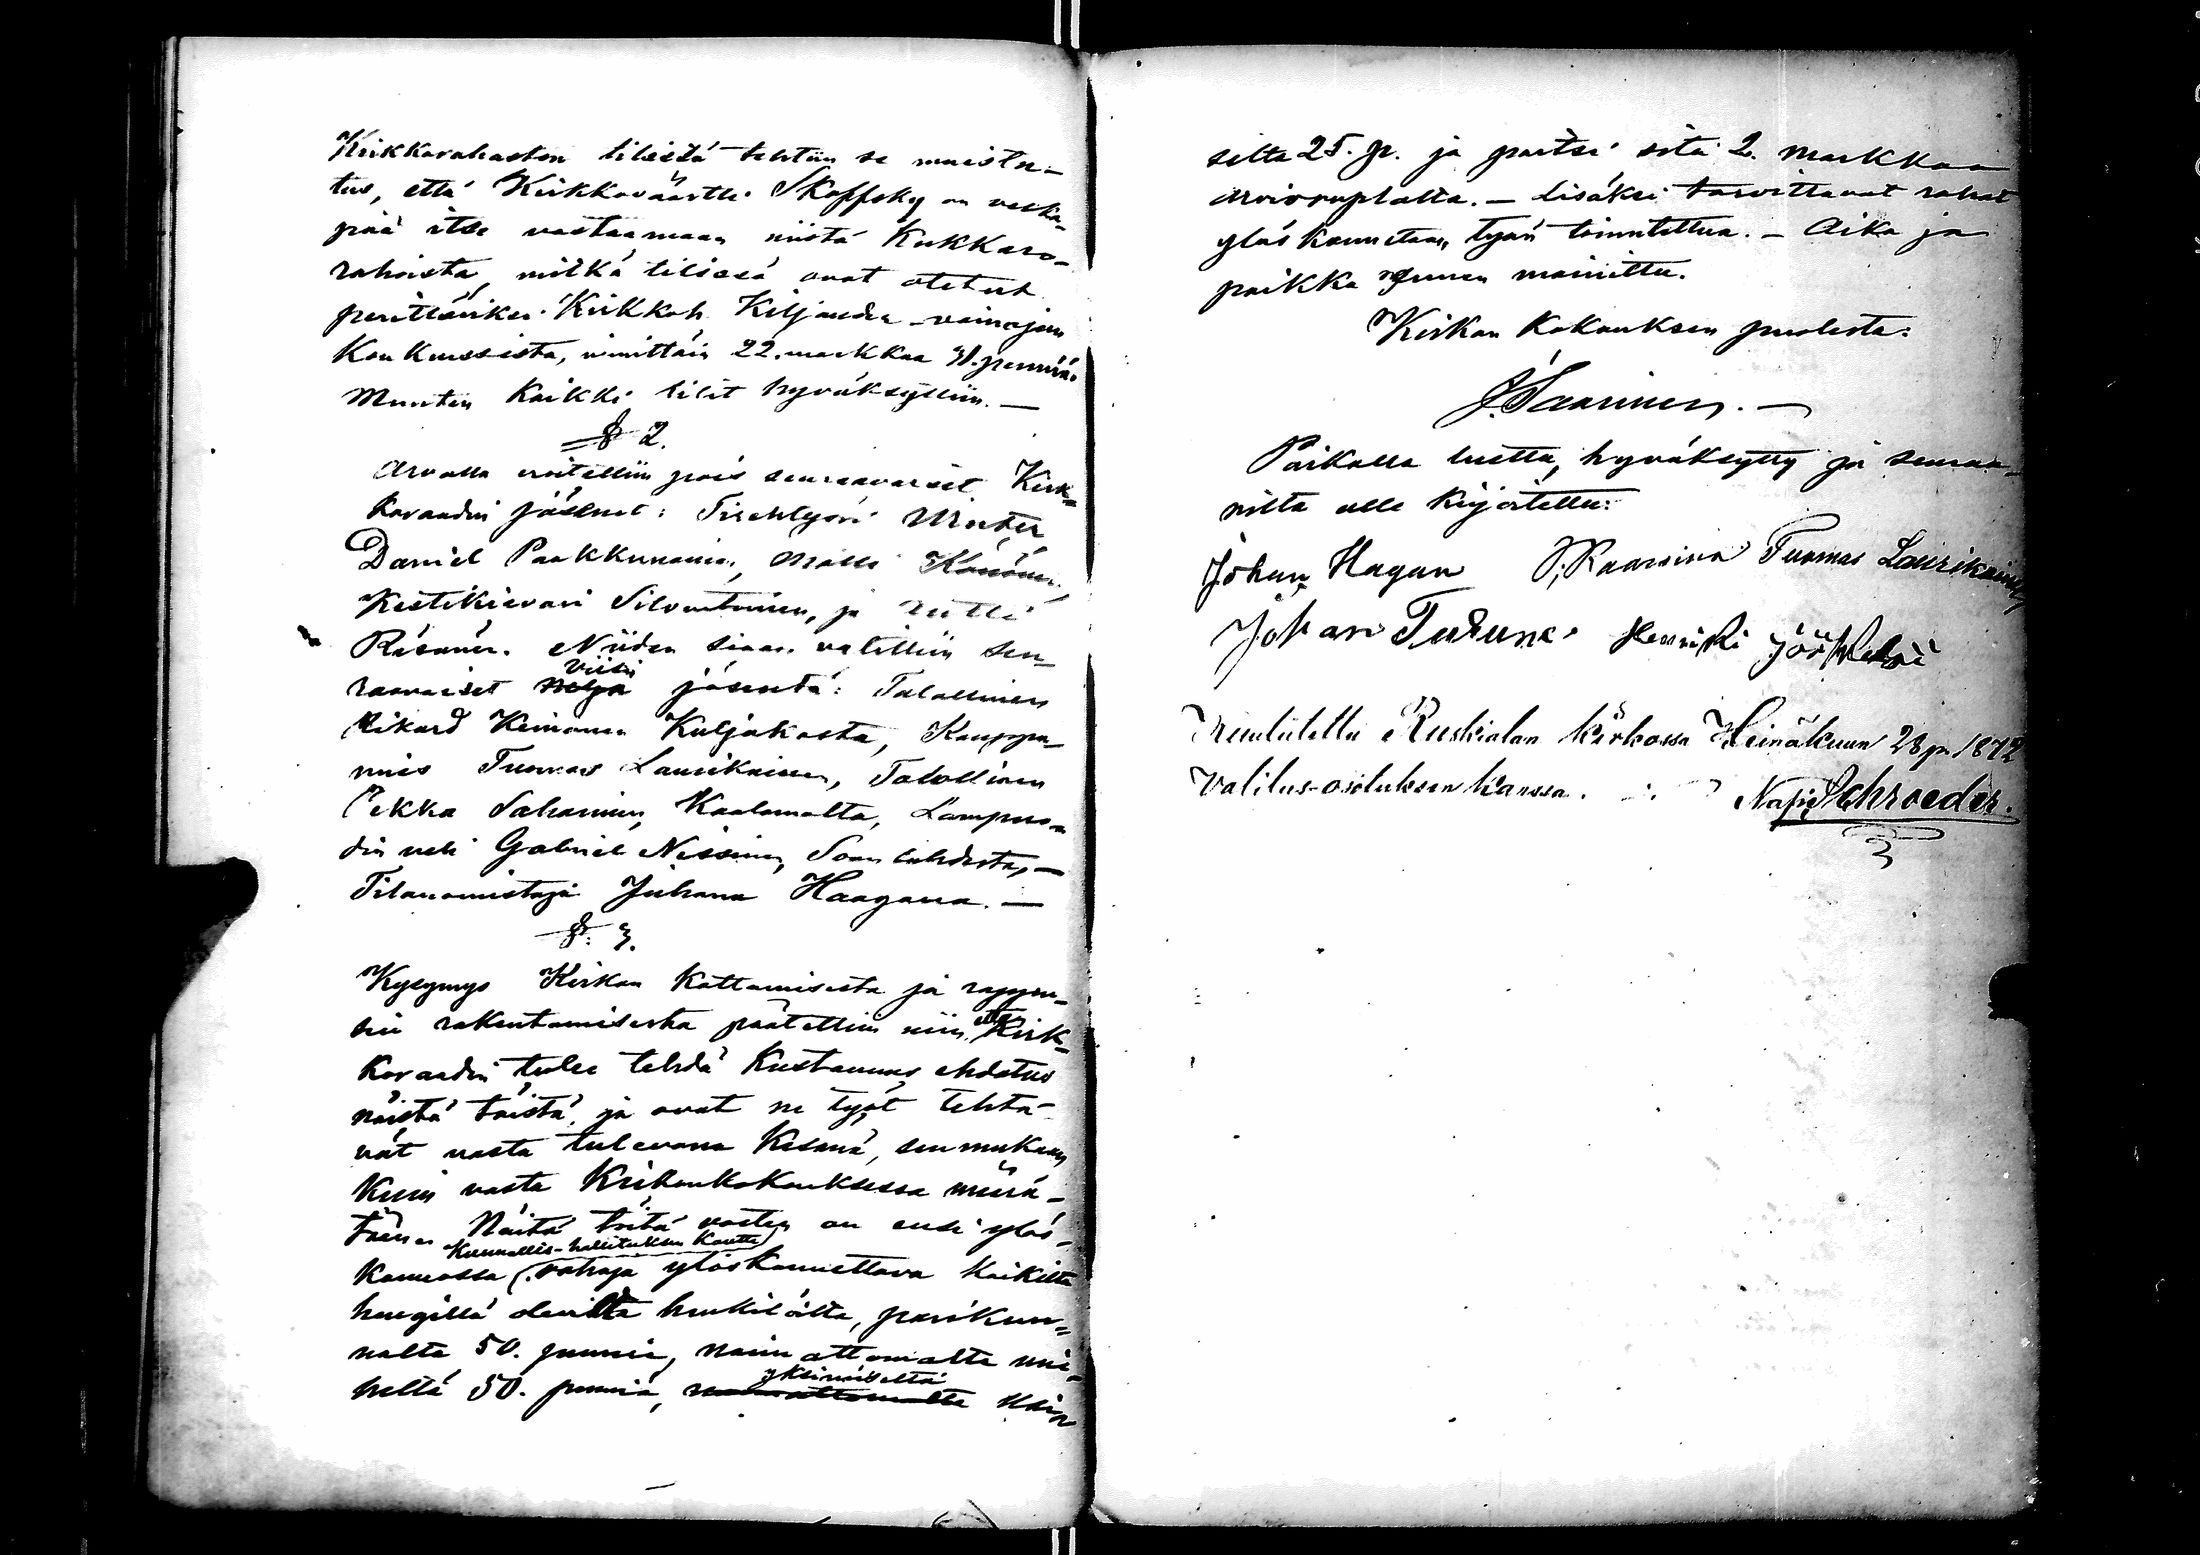 Kirkkorahaston tilissä tehtiin se muistu-
tus, että Kirkkoväärtti Skoffsky on velka-
pää itse vastaamaan niistä Kukkaro-
rahoista, mitkä tilissä ovat otetut
perittäviksi Kirkkoh. Kiljander-vainajan
Konkurssista, nimittäin 22. markkaa 91. penniä.
Muuten Kaikki tilit hyväksyttiin. —
§ 2.
Arvalla eroitettiin pois seuraavaiset Kirk-
koraadin jäsenet: Tirehtyöri Winter,
Daniel Pakkunainen, Matti Könönen,
Kestikievari Silventoinen, ja Antti
Räsänen. Näiden siaan valittiin seu-
raavaiset viisi jäsentä: Talollinen
Rikard Keinonen Kuljakosta, Kauppa-
mies Tuomas Laurikainen, Talollinen
Pekka Sahanien, Kaalamalta, Lampuo-
din veli Gabriel Nissinen, Soanlahdesta, —
Tilanomistaja Juhana Haagana. —
§. 3.
Kysymys Kirkon Kattamisesta ja rappu-
sien rakentamisesta päätettiin niin, että Kirk-
koraadin tulee tehdä Kustannus ehdotus
näistä töistä, ja ovat ne työt tehtä-
vät vasta tulevana Kesänä, sen mukaan
Kuin vasta Kirkonkokouksessa määrä-
tään. Näitä töitä vasten on ensi ylös-
Kunnallis-hallituksen Kautta
Kannossa (rahaja ylöskannettava Kaikilta
hengillä olevilta henkilöiltä, parikun-
nalta 50. penniä, naimattomalta mie-
heltä 50. penniä, yksinäiseltä nai-
selta 25. p. ja paitsi sitä 2. markkaa
arvioruplalta. — Lisäksi tarvittavat rahat
ylös kannetaan, työn toimitettua. — Aika ja
paikka ennen mainittu.
Kirkon Kokouksen puolesta:
J. Saarinen. —
Paikalla luettu, hyväksytty ja seuraa-
vilta alle kirjoitettu:
Johan Hagan Tuomas Laurikainen
Johan Turunen Henriki
Kuulutettu Ruskialan kirkossa Heinäkuun 28 p. 1872
Valitus-osotuksen kanssa. Nap: Schroeder.